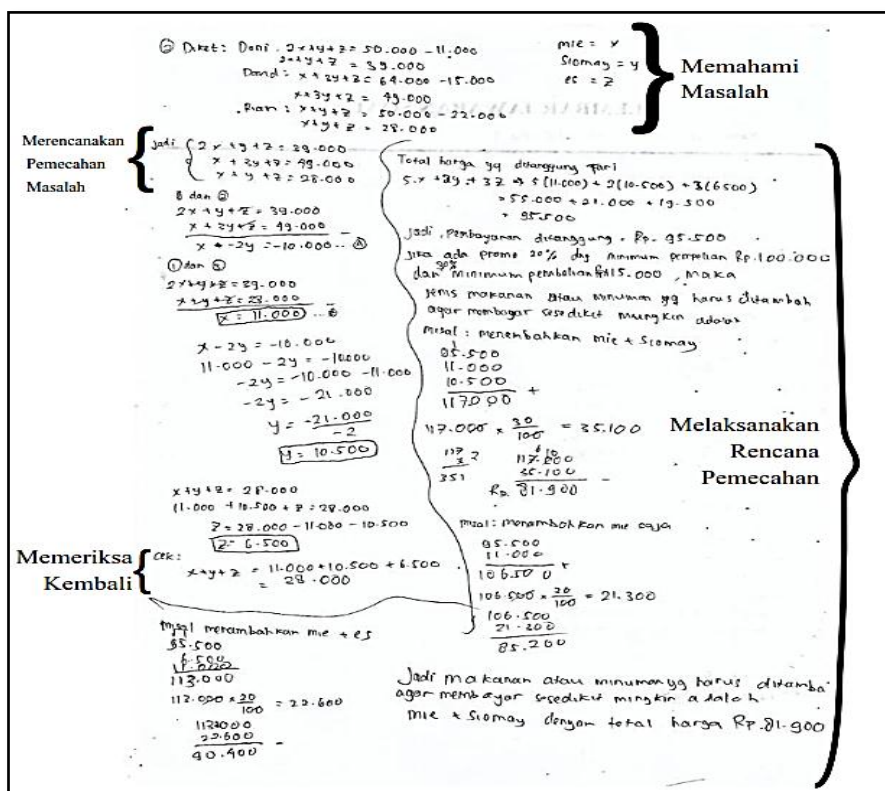 ② Diket: Doni. 2x+y+z = 50.000 - 11.000
2x+y+z = 39.000
x+3y+z = 64.000 - 15.000
x+3y+z = 49.000
x+y+z = 50.000 - 22.000
x+y+z = 28.000
mie = x
Siomay = y
es = z
Memahami
Masalah
Merencanakan
Pemecahan
Masalah
Jadi
2x+y+z = 39.000
x+3y+z = 49.000
x+y+z = 28.000
dan ②
2x+y+z = 39.000
x+3y+z = 49.000 -
x + -2y = -10.000...
① dan ③
2x+y+z = 39.000
x+y+z = 28.000
x = 11.000 ...
x - 2y = -10.000
11.000 - 2y = -10.000
-2y = -10.000 - 11.000
-2y = -21.000
y = -21.000
-2
y = 10.500
x+y+z = 28.000
11.000 + 10.500 + z = 28.000
z = 28.000 - 11.000 - 10.500
z = 6.500
Memeriksa
Kembali
cek:
x+y+z = 11.000+10.500+6.500
= 28.000
misal menambahkan mie + es
95.500
6.500
11.000
113.000
113.000 x 20/100 = 22.600
113.000
22.600 -
90.400
Total harga yg ditanggung
5x + 2y + 3z → 5(11.000) + 2(10.500) + 3(6500)
= 55.000 + 21.000 + 19.500
= 95.500
Jadi, pembayaran ditanggung = Rp. 95.500
Jika ada promo 20% dg minimum pembelian Rp.100.000
dan 30% minimum pembelian 115.000, maka
jenis makanan atau minuman yg harus ditambah
agar membayar sesedikit mungkin adalah
misal: menambahkan mie + siomay
95.500
11.000
10.500 +
117000
117.000 x 30/100 = 35.100
351
117.000
35.100 -
Rp. 81.900
Melaksanakan
Rencana
Pemecahan
misal: menambahkan mie saja
95.500
11.000 +
106.500
106.500 x 20/100 = 21.300
106.500
21.300
85.200
Jadi makanan atau minuman yg harus ditamba
agar membayar sesedikit mingkin adalah
mie + siomay dengan total harga Rp.81.900